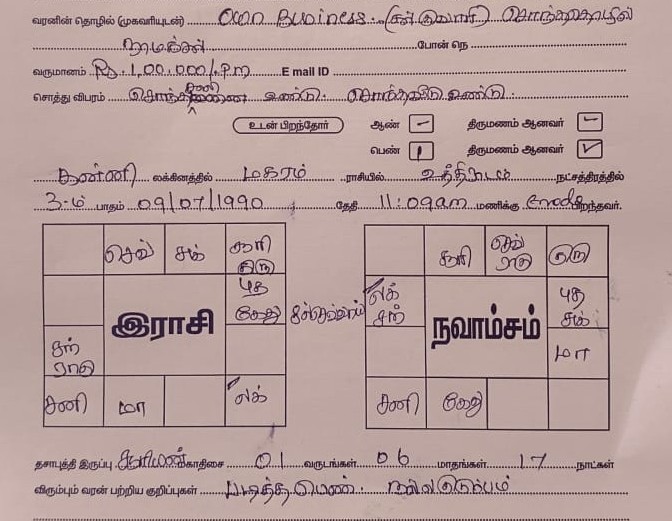 வரனின் தொழில் (முகவரியுடன்) Own Business. சொந்ததொழில்
நாமக்கல் போன் நெ
வருமானம் Rs. 1,00,000/.Pm E mail ID
சொத்து விபரம் உண்டு. சொந்தவீடு உண்டு.
உடன் பிறந்தோர் ஆண் – திருமணம் ஆனவர் –
பெண் 1 திருமணம் ஆனவர் ✓
கன்னி லக்கினத்தில் மகரம் ராசியில் உத்திராடம் நட்சத்திரத்தில்
3-ம் பாதம் 09/07/1990 தேதி 11:09am மணிக்கு Erode பிறந்தவர்.
செவ் சுக் சூரி குரு
புத கேது
இராசி
சந் ராகு
சனி மா லக்
சூரி செவ் ராகு குரு
லக் சந்
நவாம்சம்
புத சுக்
மா
சனி கேது
தசாபுத்தி இருப்பு சூரியன் காதிசை 01 வருடங்கள் 06 மாதங்கள் 17 நாட்கள்
விரும்பும் வரன் பற்றிய குறிப்புகள் படித்த பெண். நல்ல குடும்பம்